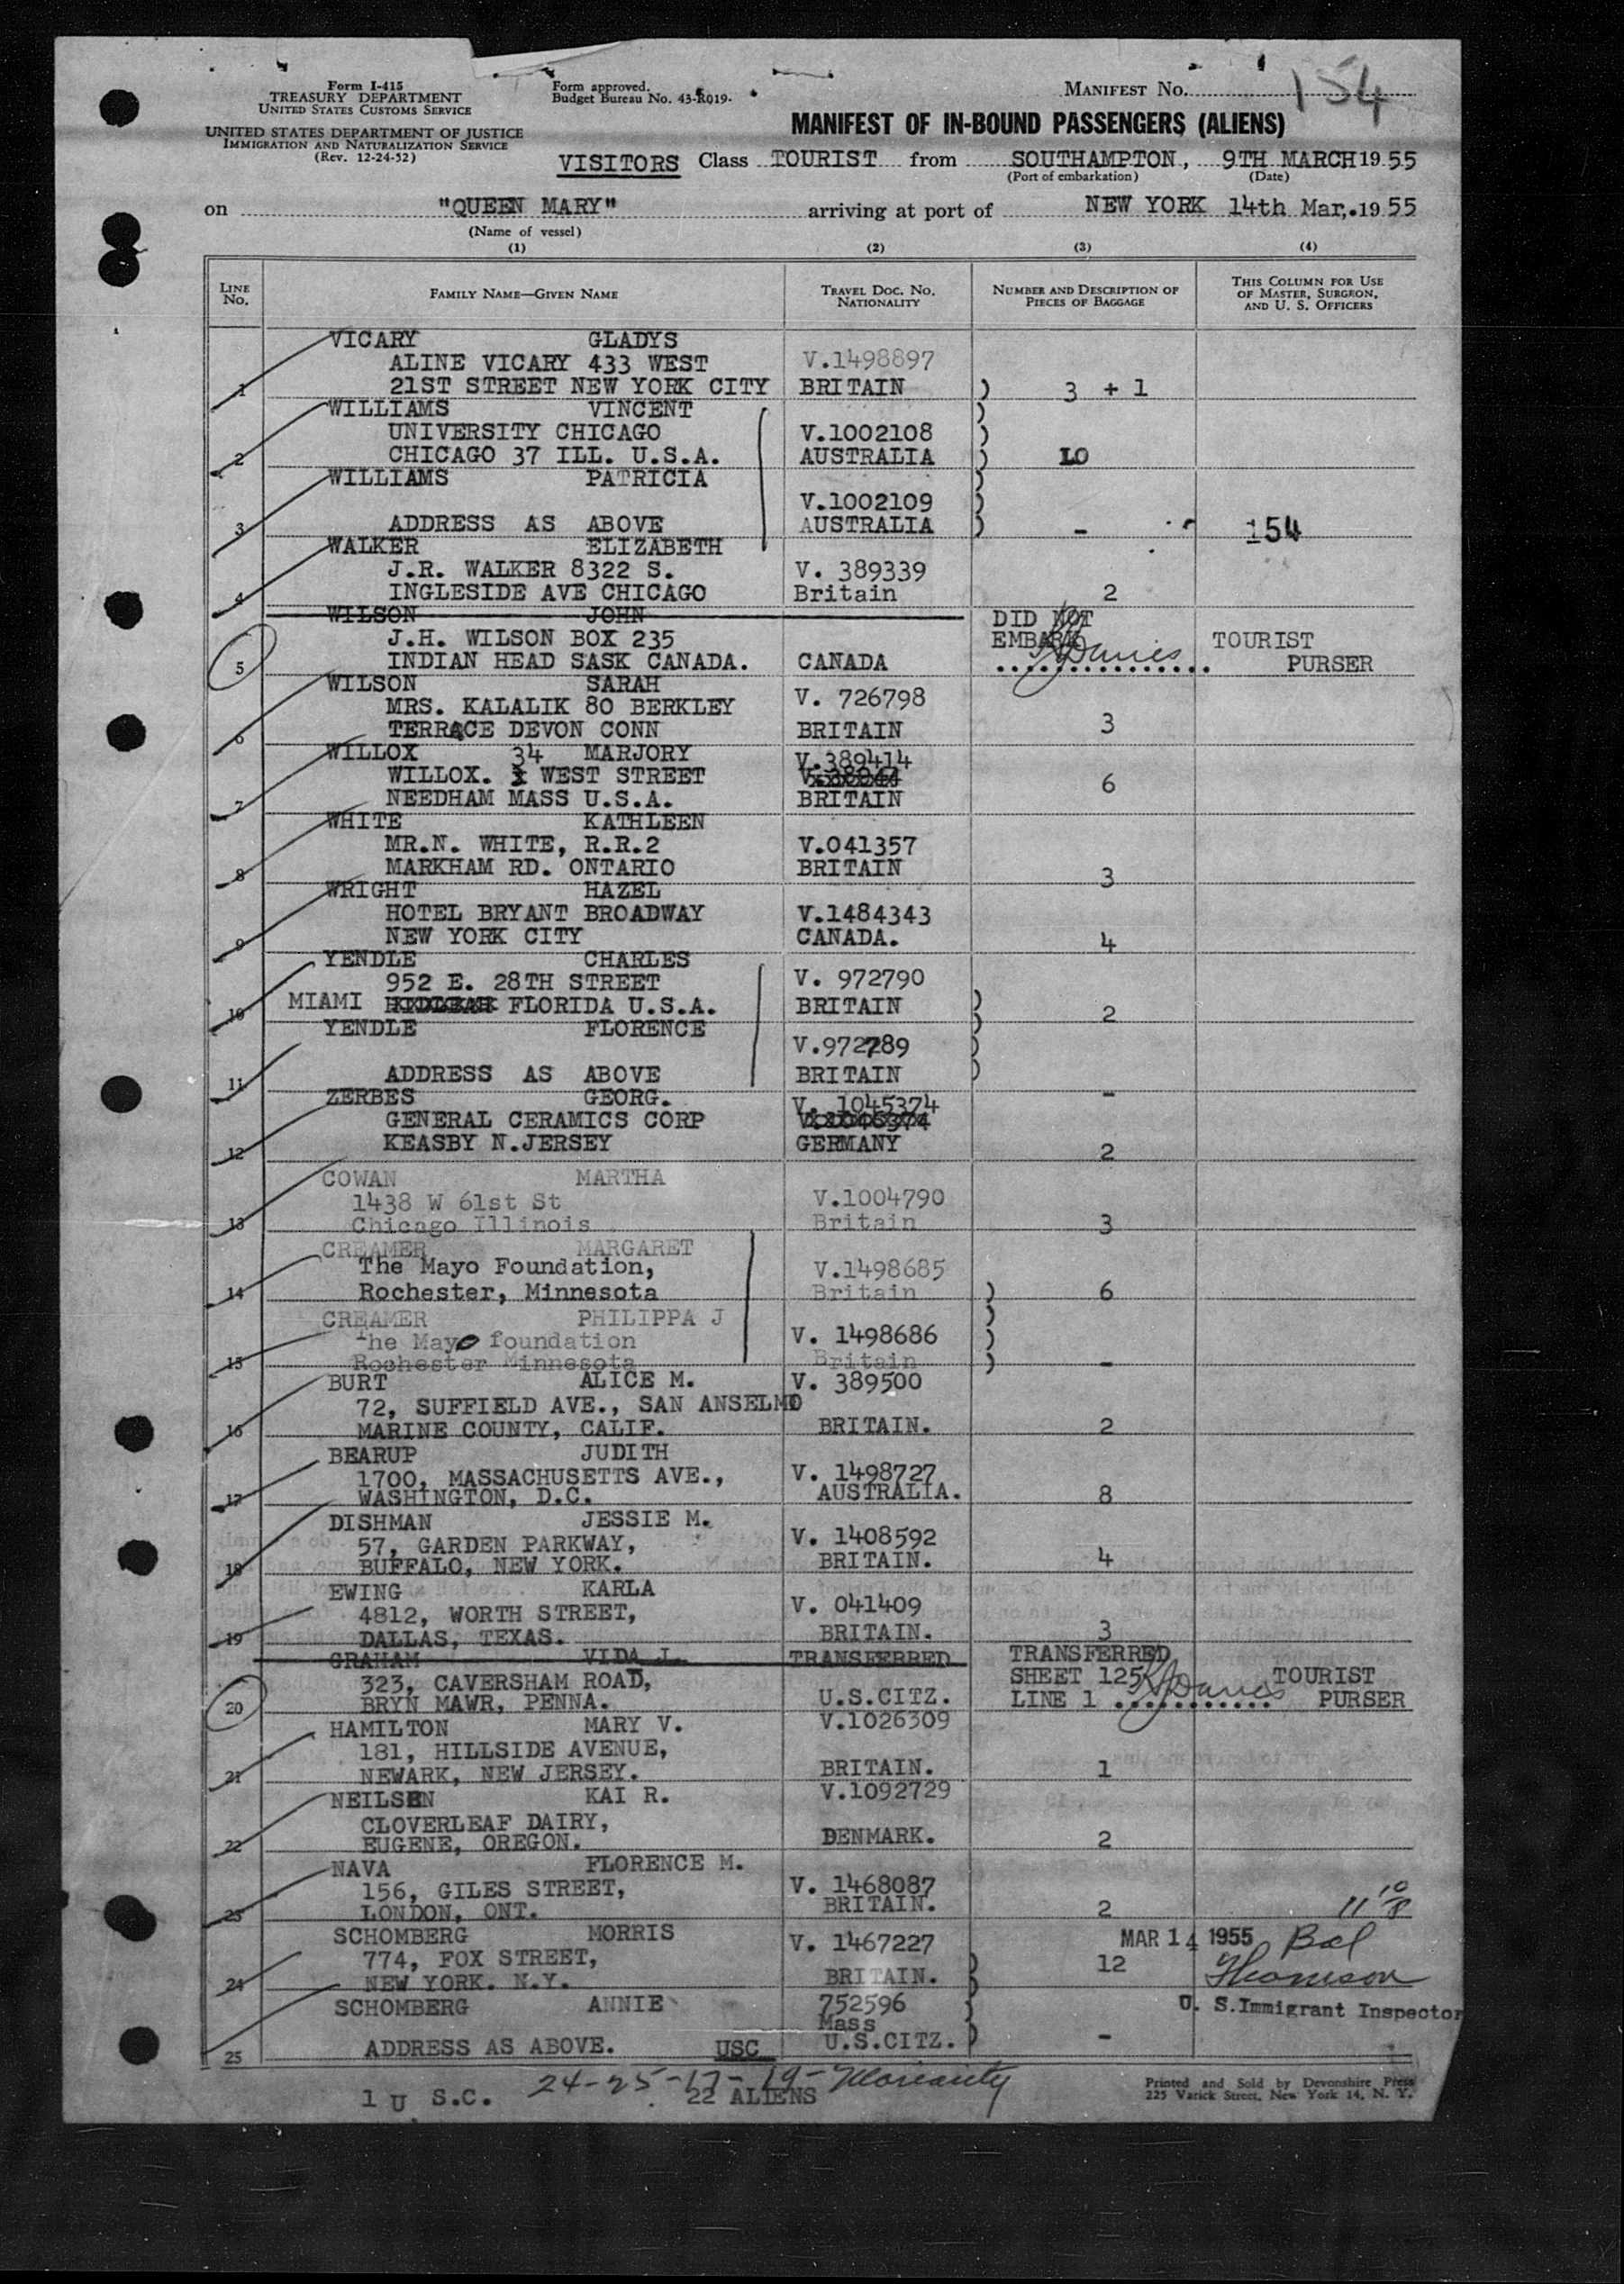 Form I-415
TREASURY DEPARTMENT
UNITED STATES CUSTOMS SERVICE
UNITED STATES DEPARTMENT OF JUSTICE
IMMIGRATION AND NATURALIZATION SERVICE
(Rev. 12-24-52)
Form approved.
Budget Bureau No. 43-R019.
MANIFEST NO. 154
MANIFEST OF IN-BOUND PASSENGERS (ALIENS)
VISITORS Class TOURIST from SOUTHAMPTON, 9TH MARCH 19 55
(Port of embarkation) (Date)
on "QUEEN MARY" arriving at port of NEW YORK 14th Mar,.19 55
(Name of vessel)
(1) (2) (3) (4)
LINE NO. FAMILY NAME—GIVEN NAME TRAVEL DOC. NO. NATIONALITY NUMBER AND DESCRIPTION OF PIECES OF BAGGAGE THIS COLUMN FOR USE OF MASTER, SURGEON, AND U. S. OFFICERS
VICARY GLADYS
ALINE VICARY 433 WEST V.1498897
1 21ST STREET NEW YORK CITY BRITAIN ) 3 + 1
WILLIAMS VINCENT )
UNIVERSITY CHICAGO V.1002108 )
2 CHICAGO 37 ILL. U.S.A. AUSTRALIA ) 10
WILLIAMS PATRICIA )
V.1002109 )
3 ADDRESS AS ABOVE AUSTRALIA ) - 154
WALKER ELIZABETH
J.R. WALKER 8322 S. V. 389339
4 INGLESIDE AVE CHICAGO Britain 2
WILSON JOHN DID NOT
J.H. WILSON BOX 235 EMBARK Davies TOURIST
5 INDIAN HEAD SASK CANADA. CANADA ............... PURSER
WILSON SARAH
MRS. KALALIK 80 BERKLEY V. 726798
6 TERRACE DEVON CONN BRITAIN 3
WILLOX 34 MARJORY V.389414
WILLOX. WEST STREET
7 NEEDHAM MASS U.S.A. BRITAIN 6
WHITE KATHLEEN
MR.N. WHITE, R.R.2 V.041357
8 MARKHAM RD. ONTARIO BRITAIN 3
WRIGHT HAZEL
HOTEL BRYANT BROADWAY V.1484343
9 NEW YORK CITY CANADA. 4
YENDLE CHARLES
952 E. 28TH STREET V. 972790
10 MIAMI FLORIDA U.S.A. BRITAIN ) 2
YENDLE FLORENCE )
V.972789 )
11 ADDRESS AS ABOVE BRITAIN ) -
ZERBES GEORG. V. 1045374
GENERAL CERAMICS CORP
12 KEASBY N.JERSEY GERMANY 2
COWAN MARTHA
1438 W 61st St V.1004790
13 Chicago Illinois Britain 3
CREAMER MARGARET
The Mayo Foundation, V.1498685
14 Rochester, Minnesota Britain ) 6
CREAMER PHILIPPA J )
The Mayo foundation V. 1498686 )
15 Rochester Minnesota Britain ) -
BURT ALICE M. V. 389500
72, SUFFIELD AVE., SAN ANSELMO
16 MARINE COUNTY, CALIF. BRITAIN. 2
BEARUP JUDITH
1700, MASSACHUSETTS AVE., V. 1498727
17 WASHINGTON, D.C. AUSTRALIA. 8
DISHMAN JESSIE M.
57, GARDEN PARKWAY, V. 1408592
18 BUFFALO, NEW YORK. BRITAIN. 4
EWING KARLA
4812, WORTH STREET, V. 041409
19 DALLAS, TEXAS. BRITAIN. 3
GRAHAM VIDA J. TRANSFERRED TRANSFERRED
323, CAVERSHAM ROAD, SHEET 125 Davies TOURIST
20 BRYN MAWR, PENNA. U.S.CITZ. LINE 1 ............ PURSER
HAMILTON MARY V. V.1026309
181, HILLSIDE AVENUE,
21 NEWARK, NEW JERSEY. BRITAIN. 1
NEILSEN KAI R. V.1092729
CLOVERLEAF DAIRY,
22 EUGENE, OREGON. DENMARK. 2
NAVA FLORENCE M.
156, GILES STREET, V. 1468087
23 LONDON, ONT. BRITAIN. 2
SCHOMBERG MORRIS MAR 14 1955 Bal
774, FOX STREET, V. 1467227 12
24 NEW YORK. N.Y. BRITAIN. )
SCHOMBERG ANNIE 752596 ) U. S.Immigrant Inspector
Mass
25 ADDRESS AS ABOVE. USC U.S.CITZ. ) -
24-25-17-19-Moriarity
1 U S.C. 22 ALIENS
Printed and Sold by Devonshire Press
225 Varick Street, New York 14, N. Y.